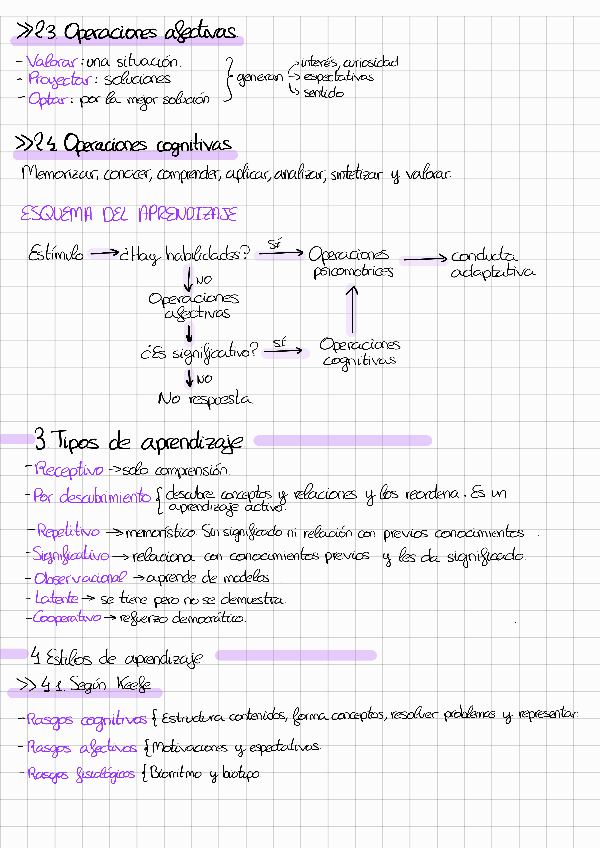 >>2.3. Operaciones afectivas
- Valorar: una situación.
- Proyectar: soluciones
- Optar: por la mejor solución
} generan → interés, curiosidad
→ espectativas
↳ sentido
>>2.4. Operaciones cognitivas
Memorizar, conocer, comprender, aplicar, analizar, sintetizar y valorar.
ESQUEMA DEL APRENDIZAJE
Estímulo → ¿Hay habilidades? SÍ → Operaciones psicomotrices → conducta adaptativa
↓ NO
Operaciones afectivas
↓
¿Es significativo? SÍ → Operaciones cognitivas ↑
↓ NO
No respuesta
3 Tipos de aprendizaje
- Receptivo → solo comprensión.
- Por descubrimiento { descubre conceptos y relaciones y los reordena. Es un
aprendizaje activo.
- Repetitivo → memorístico. Sin significado ni relación con previos conocimientos.
- Significativo → relaciona con conocimientos previos y les da significado.
- Observacional → aprende de modelos
- Latente → se tiene pero no se demuestra.
- Cooperativo → refuerzo democrático.
4 Estilos de aprendizaje
>> 4.1. Según Keefe
- Rasgos cognitivos { Estructura contenidos, forma conceptos, resolver problemas y representar.
- Rasgos afectivos { Motivaciones y espectativas.
- Rasgos fisiológicos { Biorritmo y biotipo